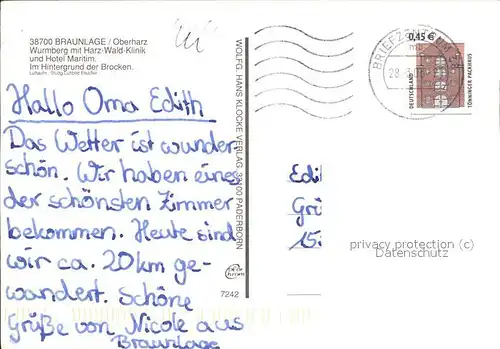 38700 BRAUNLAGE / Oberharz
Wurmberg mit Harz-Wald-Klinik
und Hotel Maritim.
Im Hintergrund der Brocken.
Hallo Oma Edith
Das Wetter ist wunder-
schön. Wir haben eines
der schönsten Zimmer
bekommen. Heute sind
wir ca. 20km ge-
wandert. Schöne
Grüße von Nicole aus
Braunlage
WOLFG. HANS KLOCKE VERLAG, 33100 PADERBORN
7242
BRIEFZENTRUM
0,15 €
DEUTSCHLAND
TÖNNINGER PACKHAUS
Edi
Gr
15
privacy protection (c)
Datenschutz